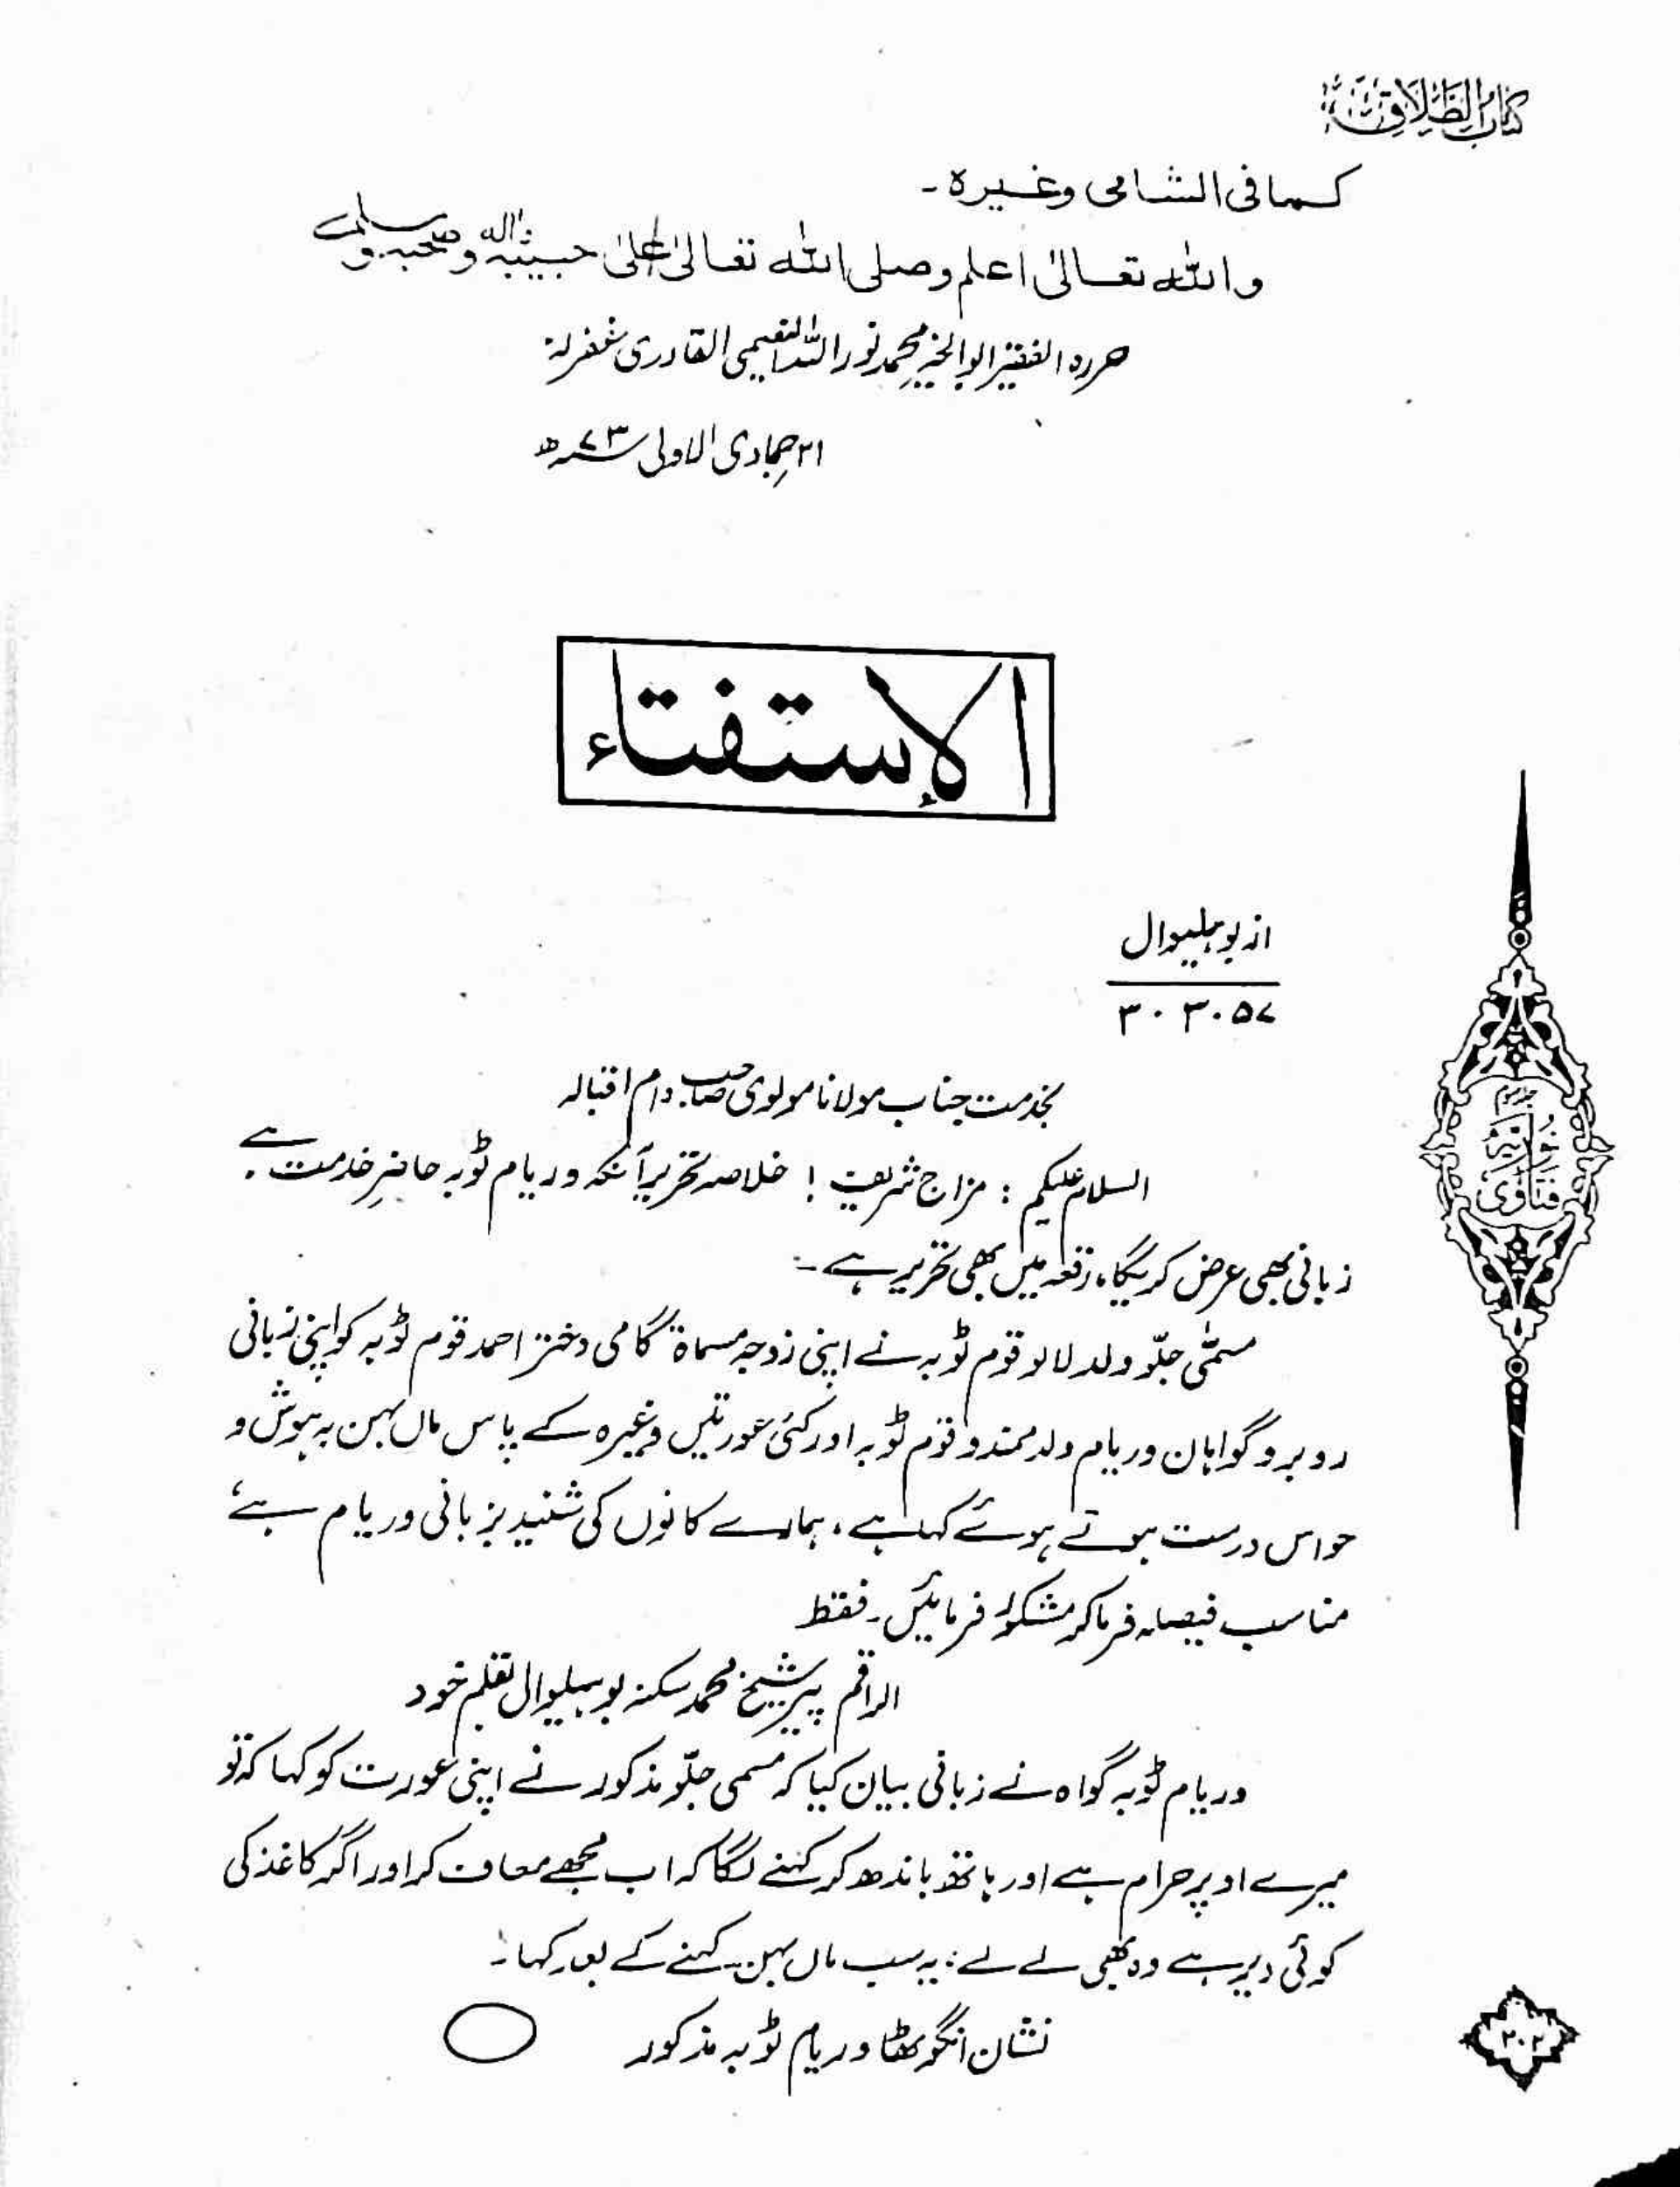 کتاب الطلاق
کما فی الشامی وغیرہ۔
واللہ تعالیٰ اعلم وصلی اللہ تعالیٰ علیٰ حبیبہ واٰلہ وصحبہ وسلم
حررہ الفقیر ابوالخیر محمد نور اللہ النعیمی القادری غفرلہ
۲۱ جمادی الاولیٰ ۷۳ھ
الاستفتاء
از بوہلیوال
۳۰۔۳۔۵۷
بخدمت جناب مولانا مولوی صاحب دام اقبالہ
السلام علیکم : مزاج شریف ! خلاصہ تحریر آنکہ وریام ٹوبہ حاضرِ خدمت ہے۔
زبانی بھی عرض کریگا، رقعہ میں بھی تحریر ہے۔
مسمّٰی جلّو ولد لالو قوم ٹوبہ نے اپنی زوجہ مسماۃ گامی دختر احمد قوم ٹوبہ کو اپنی زبانی
روبرو گواہان وریام ولد ممندو قوم ٹوبہ اور کئی عورتیں وغیرہ کے پاس ماں بہن بہ ہوش و
حواس درست ہوتے ہوئے کہا ہے، ہمارے کانوں کی شنید بزبانی وریام ہے
مناسب فیصلہ فرما کر مشکور فرمائیں۔ فقط
الراقم پیر شیخ محمد سکنہ بوہلیوال بقلم خود
وریام ٹوبہ گواہ نے زبانی بیان کیا کہ مسمی جلّو مذکور نے اپنی عورت کو کہا کہ تو
میرے اوپر حرام ہے اور ہاتھ باندھ کر کہنے لگا کہ اب مجھے معاف کر اور اگر کاغذ کی
کوئی دیر ہے وہ بھی لے لے، یہ سب ماں بہن کہنے کے بعد کہا۔
نشان انگوٹھا وریام ٹوبہ مذکور
فتاویٰ نوریہ
۳۰۲